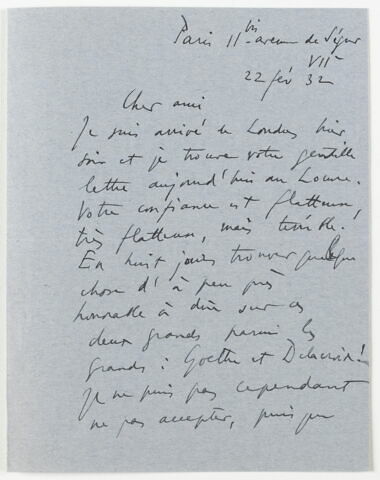 Paris 11 bis avenue de Ségur
VIIe
22 fév 32
Cher ami
Je suis arrivé de Londres hier
soir et je trouve votre gentille
lettre aujourd'hui au Louvre.
Votre confiance est flatteuse,
très flatteuse, mais terrible.
En huit jours trouver quelque
chose d'à peu près
honorable à dire sur ces
deux grands parmi les
grands : Goethe et Delacroix !
Je ne puis pas cependant
ne pas accepter, puisque